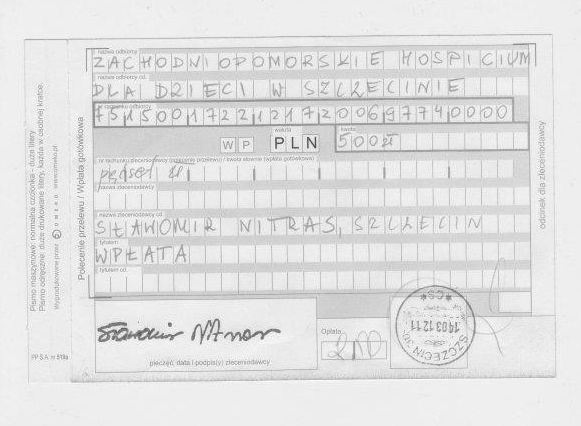 nazwa odbiorcy
ZACHODNIOPOMORSKIE HOSPICIUM
nazwa odbiorcy cd.
DLA DZIECI W SZCZECINIE
nr rachunku odbiorcy
75150017221217200697740000
WP
waluta
PLN
kwota
500 zł
nr rachunku zleceniodawcy (polecenie przelewu) / kwota słownie (wpłata gotówkowa)
pęćset zł
nazwa zleceniodawcy
nazwa zleceniodawcy cd.
SŁAWOMIR NITRAS, SZCZECIN
tytułem
WPŁATA
tytułem cd.
Opłata
2,00
pieczęć, data i podpis(y) zleceniodawcy
SZCZECIN 30
14 03 12 11
Polecenie przelewu / Wpłata gotówkowa
odcinek dla zleceniodawcy
Pismo maszynowe: normalna czcionka - duże litery
Pismo odręczne: duże drukowane litery, każda w osobnej kratce.
Wyprodukowane przez
PP S.A. nr 513a